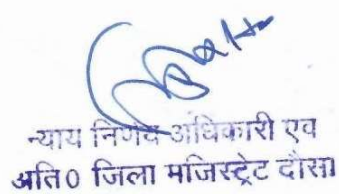 न्याय निर्णय अधिकारी एवं
अति० जिला मजिस्ट्रेट दौसा